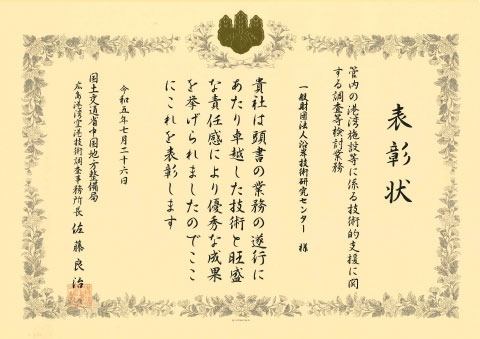 表彰状
管内の港湾施設等に係る技術的支援に関
する調査等検討業務
一般財団法人沿岸技術研究センター 様
貴社は頭書の業務の遂行に
あたり卓越した技術と旺盛
な責任感により優秀な成果
を挙げられましたのでここ
にこれを表彰します
令和五年七月二十六日
国土交通省中国地方整備局
広島港湾空港技術調査事務所長 佐藤良治